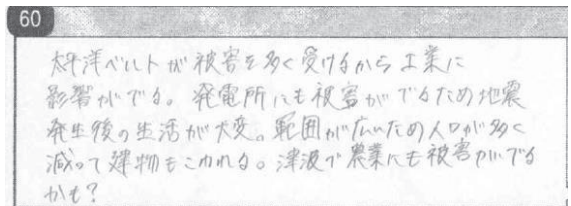 60
太平洋ベルトが被害を多く受けるから工業に
影響がでる。発電所にも被害がでるため地震
発生後の生活が大変。範囲が広いため人口が多く
減って建物もこわれる。津波で農業にも被害がでる
かも？